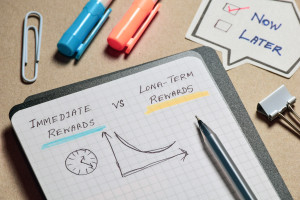 IMMEDIATE REWARDS
VS
LONG-TERM REWARDS
NOW
LATER